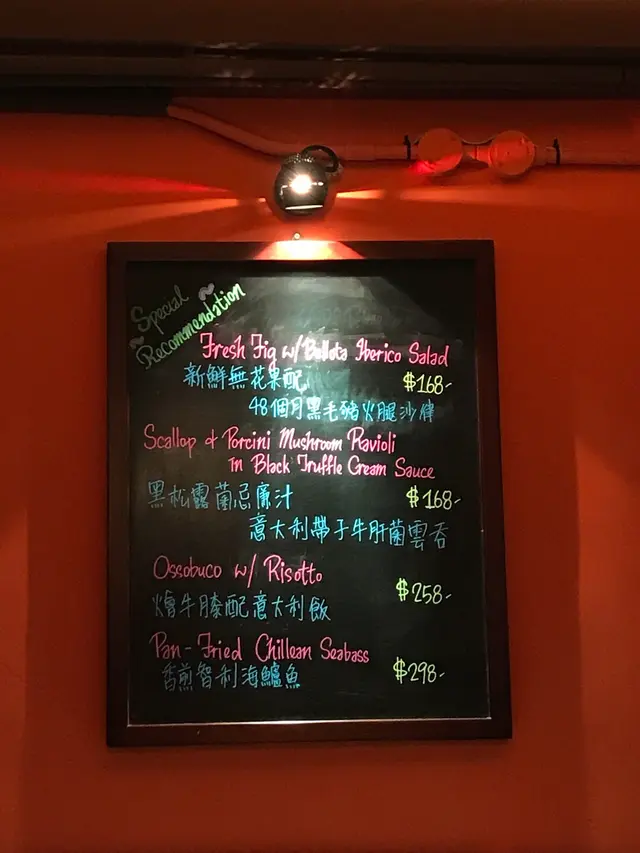 Special
Recommendation
Fresh Fig w/ Bellota Iberico Salad
新鮮無花果配 $168-
48個月黑毛豬火腿沙律
Scallop & Porcini Mushroom Ravioli
in Black Truffle Cream Sauce
黑松露菌忌廉汁 $168-
意大利帶子牛肝菌雲吞
Ossobuco w/ Risotto
燴牛膝配意大利飯 $258-
Pan-Fried Chilean Seabass
香煎智利海鱸魚 $298-